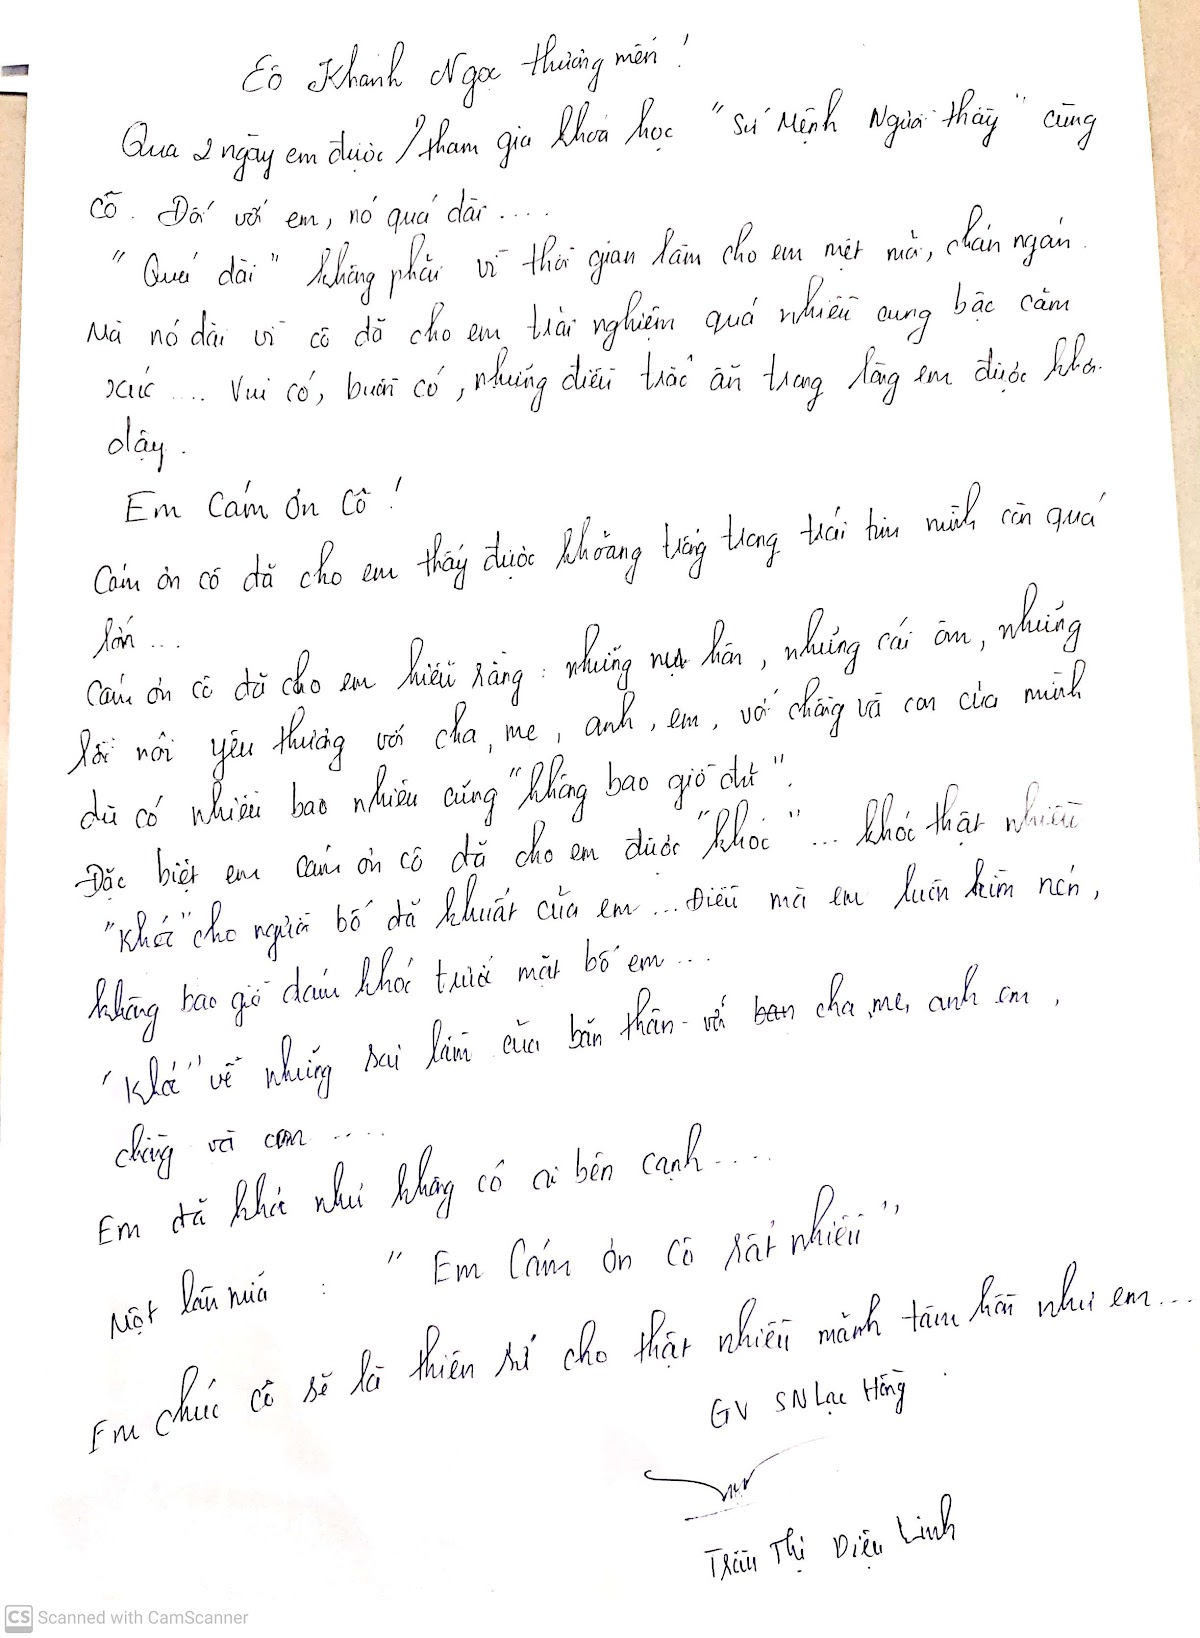 Cô Khánh Ngọc thương mến!
Qua 2 ngày em được tham gia khoá học "Sứ Mệnh Người thầy" cùng
cô. Đối với em, nó quá dài....
"Quá dài" không phải vì thời gian làm cho em mệt mỏi, chán ngán.
Mà nó dài vì cô đã cho em trải nghiệm quá nhiều cung bậc cảm
xúc .... Vui có, buồn có, những điều trắc ẩn trong lòng em được khơi
dậy.
Em Cám ơn Cô!
Cám ơn cô đã cho em thấy được khoảng trống trong trái tim mình còn quá
lớn...
Cám ơn cô đã cho em hiểu rằng: những nụ hôn, những cái ôm, những
lời nói yêu thương với cha, mẹ, anh, em, với chồng và con của mình
dù có nhiều bao nhiêu cũng "không bao giờ đủ".
Đặc biệt em cám ơn cô đã cho em được "khóc"... khóc thật nhiều
"Khóc" cho người bố đã khuất của em... Điều mà em luôn kìm nén,
không bao giờ dám khóc trước mặt bố em...
"Khóc" về những sai lầm của bản thân với cha, mẹ, anh em,
chồng và con ....
Em đã khóc như không có ai bên cạnh....
Một lần nữa : "Em Cám ơn Cô rất nhiều"
Em chúc cô sẽ là thiên sứ cho thật nhiều mảnh tâm hồn như em...
GV SN Lạc Hồng
Trần Thị Diệu Linh
CS Scanned with CamScanner